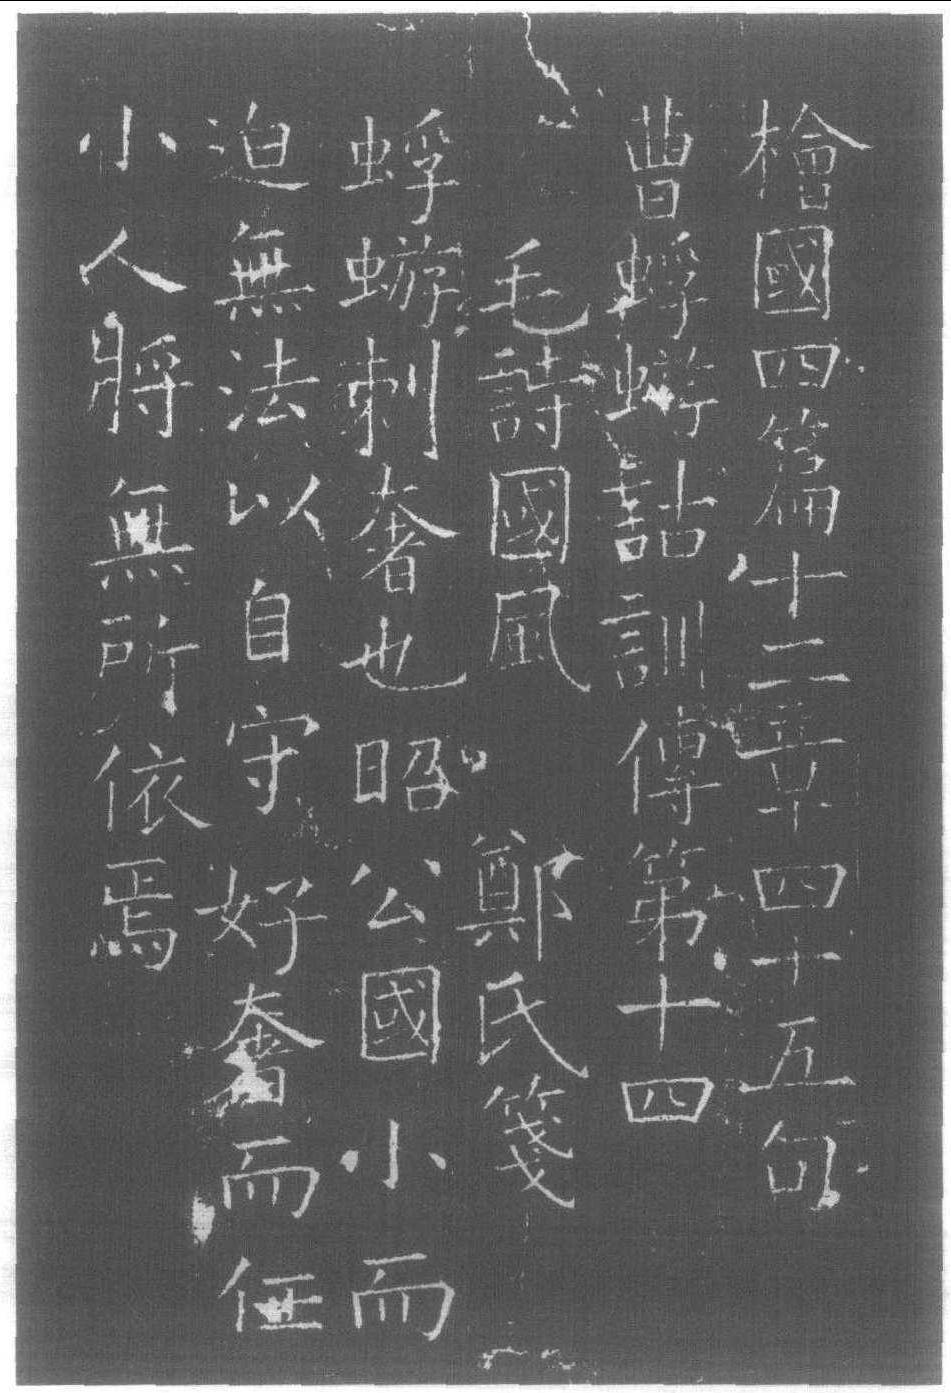 檜國四篇十二章四十五句
曹蜉蝣詁訓傳第十四
毛詩國風 鄭氏箋
蜉蝣刺奢也昭公國小而
迫無法以自守好奢而任
小人將無所依焉